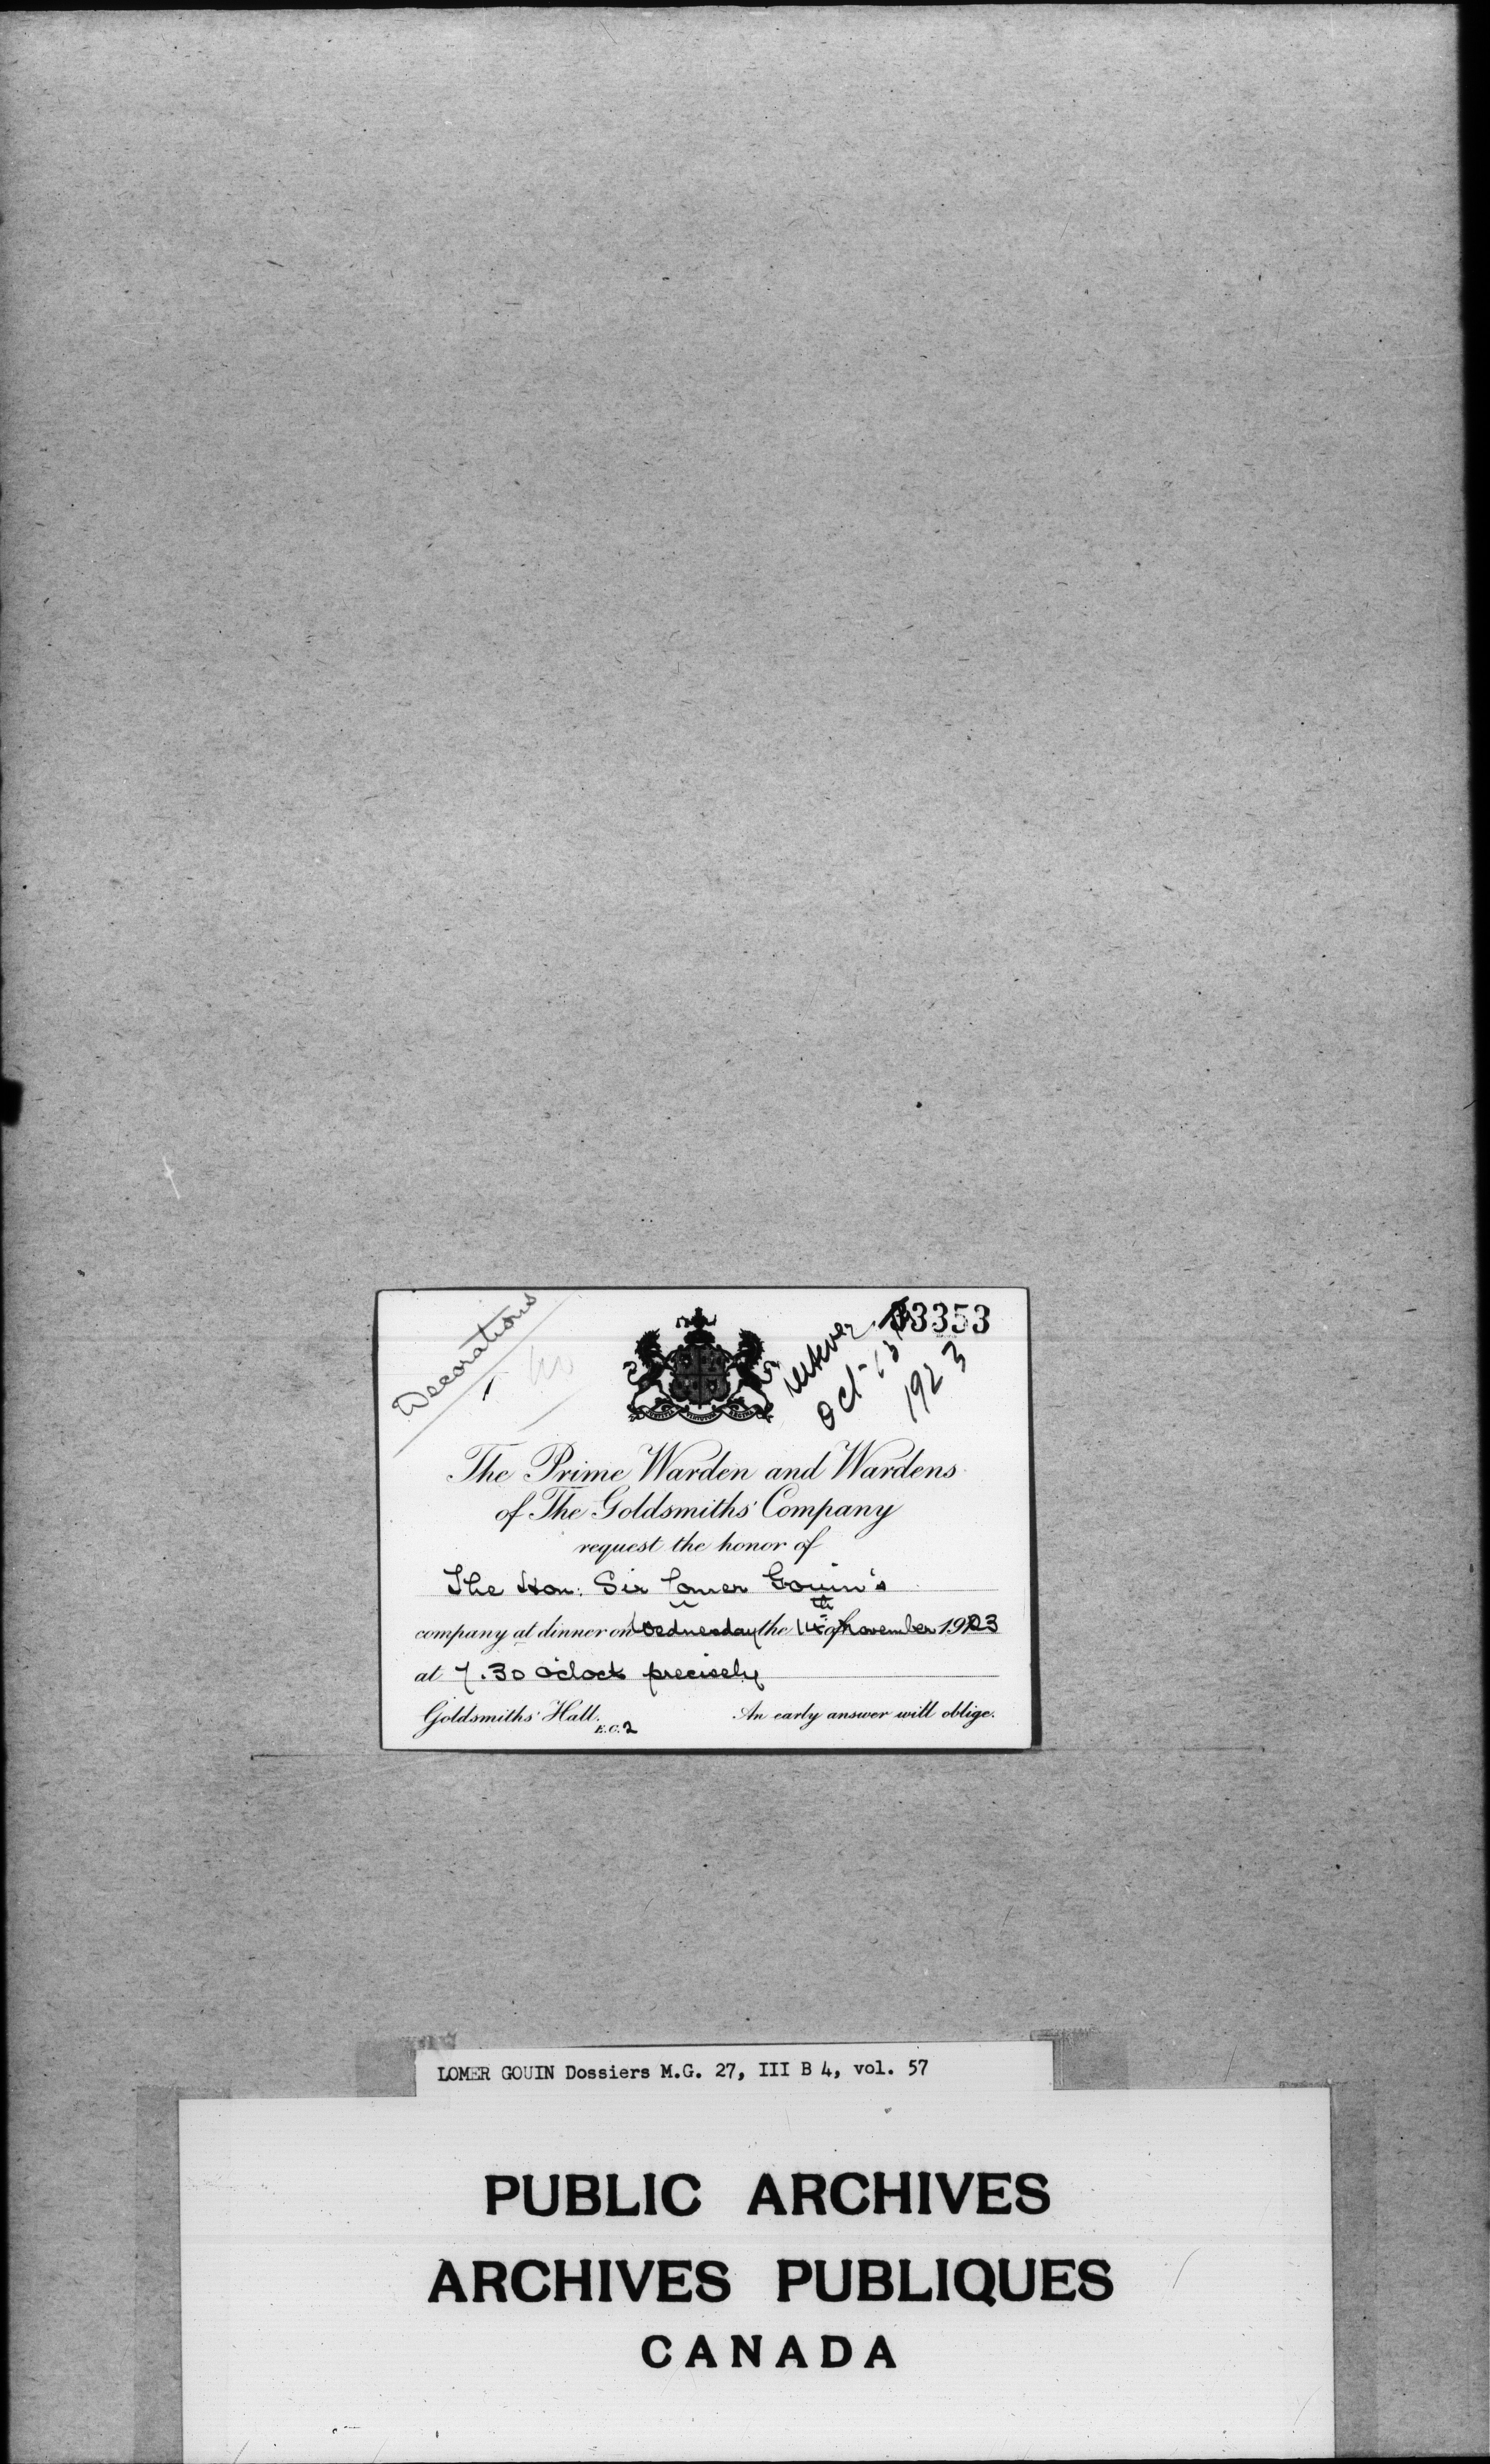 Decorations
33353
Oct-13
1923
JUSTITIA VIRTUTUM REGINA
The Prime Warden and Wardens
of The Goldsmiths' Company
request the honor of
The Hon: Sir Lomer Gouin's
company at dinner on Wednesday the 14th of November 1923
at 7.30 o'clock precisely
Goldsmiths' Hall. E.C.2
An early answer will oblige.
LOMER GOUIN Dossiers M.G. 27, III B 4, vol. 57
PUBLIC ARCHIVES
ARCHIVES PUBLIQUES
CANADA